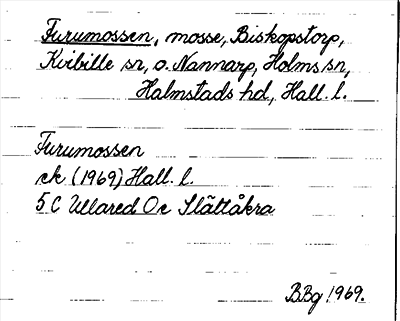 Furumossen, mosse, Biskopstorp,
Kvibille sn, o. Nannarp, Holms sn,
Halmstads hd., Hall. l.
Furumossen
ek (1969) Hall. l.
5 C Ullared 0 c Slättåkra
BBg 1969.